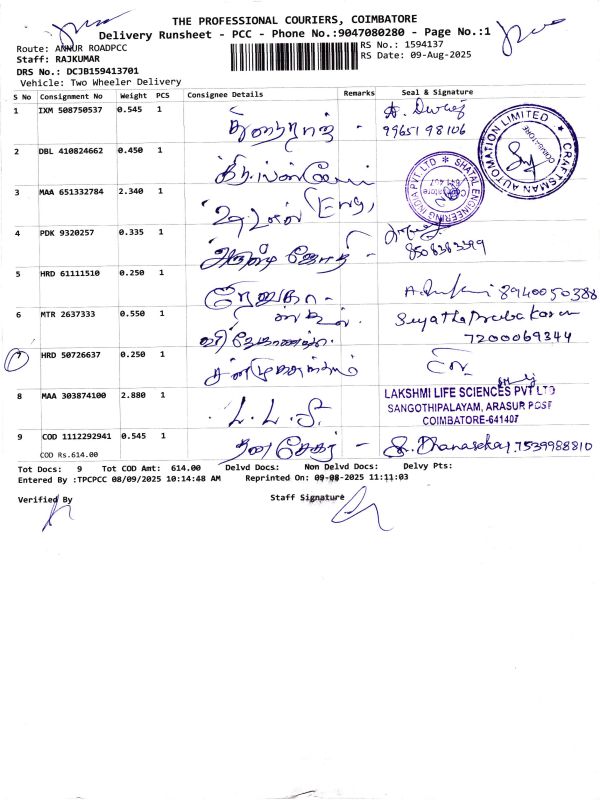 THE PROFESSIONAL COURIERS, COIMBATORE
Delivery Runsheet - PCC - Phone No.:9047080280 - Page No.:1
Route: ANNUR ROADPCC
RS No.: 1594137
Staff: RAJKUMAR
RS Date: 09-Aug-2025
DRS No.: DCJB159413701
Vehicle: Two Wheeler Delivery
S No Consignment No Weight PCS Consignee Details Remarks Seal & Signature
1 IXM 508750537 0.545 1
99651 98106
CRAFTSMAN AUTOMATION LIMITED
COIMBATORE
2 DBL 410824662 0.450 1
SHATAL ENGINEERING INDIA PVT LTD
3 MAA 651332784 2.340 1
4 PDK 9320257 0.335 1
8508383399
5 HRD 61111510 0.250 1 ரேணுகா - 8940050388
6 MTR 2637333 0.550 1 Sujatha Prabakaran
7200069344
7 HRD 50726637 0.250 1
8 MAA 303874100 2.880 1 L. L. S.
LAKSHMI LIFE SCIENCES PVT LTD
SANGOTHIPALAYAM, ARASUR POST
COIMBATORE-641407
9 COD 1112292941 0.545 1 தனசேகர் - S. Dhanasekar, 7539988810
COD Rs.614.00
Tot Docs: 9 Tot COD Amt: 614.00 Delvd Docs: Non Delvd Docs: Delvy Pts:
Entered By :TPCPCC 08/09/2025 10:14:48 AM Reprinted On: 09-08-2025 11:11:03
Verified By Staff Signature